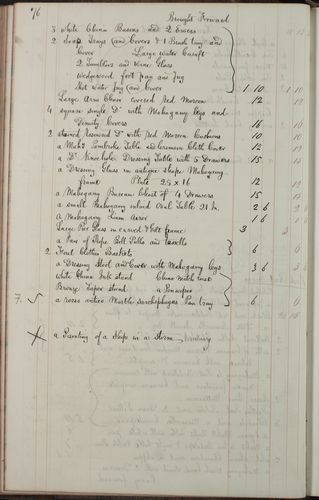 76
Brought Forward
3 White China Basins and 2 Ewers
2 Soap Trays and Covers & 1 Brush tray and
Cover Large water Caraft
2 Tumblers and Wine Glass
Wedgewood foot pan and Jug
Hot water Jug and Cover 1 10 1 10
Large Arm Chair covered Red Moreen 12 12
4 square single Do with Mahogany legs and
Dimity Covers 16 16
2 stained Rosewood Do with Red Moreen Cushions 10 10
a Mahy Pembroke Table and Crimson Cloth Cover 12
a Do Kneehole Dressing Table with 5 Drawers 15 15
a Dressing Glass in antique shape Mahogany
frame Plate 25 x 16 12 12
a Mahogany Bureau Chest of 4 Drawers 15
a small Mahogany inlaid Oval Table 21 In. 2 6
a Mahogany Linen Airer 1 6
Large Pier Glass in carved & Gilt frame 3 3
a Pair of Rope Bell Pulls and tassells
2 Foul Clothes Baskets 6 6
a Dressing Stool and Cover with Mahogany legs 3 6
White China Ink stand China Match
Bronze Taper stand a Penwiper
7. a rosso antico Marble Sarchophagus Pen tray 6 6
a Painting of a Ship in a Storm